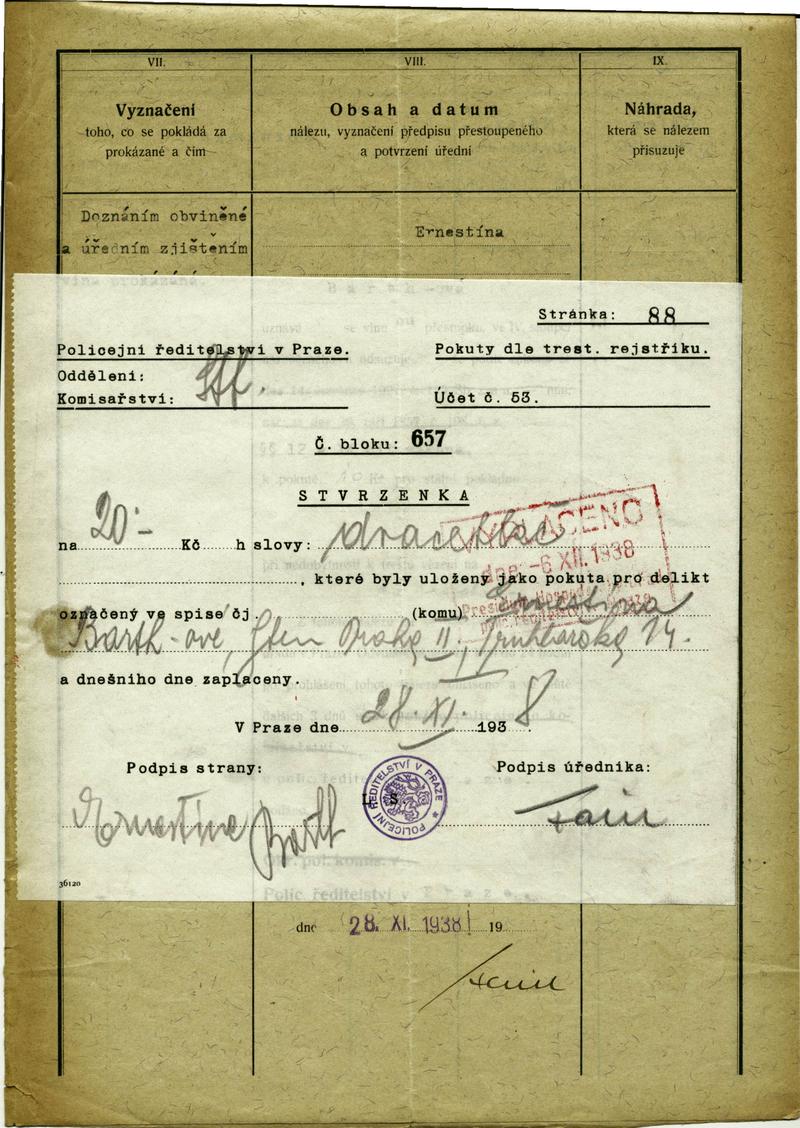 VII.
VIII.
IX.
Vyznačení
toho, co se pokládá za
prokázané a čím
Obsah a datum
nálezu, vyznačení předpisu přestoupeného
a potvrzení úřední
Náhrada,
která se nálezem
přisuzuje
Doznáním obviněné
a úředním zjištěním
vina prokázána.
Ernestína
Barth-ová
Stránka: 88
Policejní ředitelství v Praze.
Pokuty dle trest. rejstříku.
Oddělení:
Komisařství:
Účet č. 53.
Č. bloku: 657
STVRZENKA
na 20·- Kč h slovy: dvacet Kč
, které byly uloženy jako pokuta pro delikt
označený ve spise čj. (komu) Ernestina
Barth-ové, Praha II, Truhlářská 14.
a dnešního dne zaplaceny.
V Praze dne 28. XI. 1938.
Podpis strany:
Podpis úředníka:
Ernestine Barth
L S.
POLICEJNÍ ŘEDITELSTVÍ V PRAZE
VYPLACENO
dne -6 XII. 1938
36120
Polic. ředitelství v Praze
dne 28. XI. 1938 19